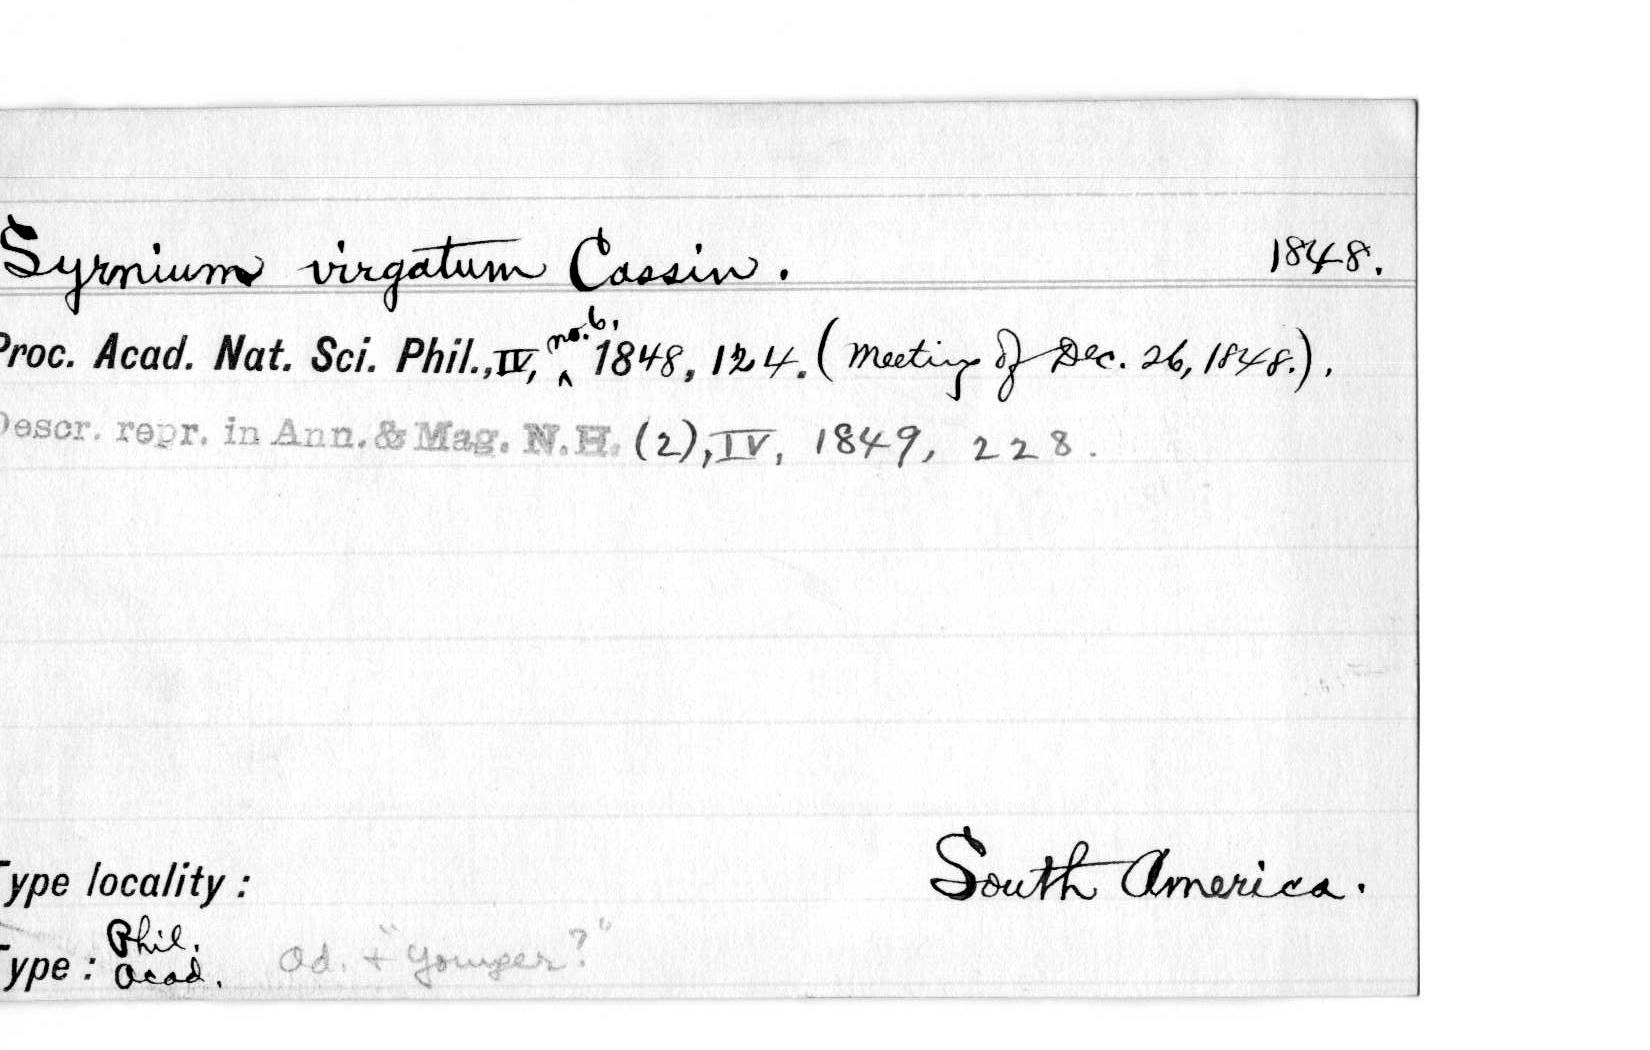 Syrnium virgatum Cassin. 1848.
Proc. Acad. Nat. Sci. Phil., IV, no. 6, 1848, 124. (Meeting of Dec. 26, 1848.).
Descr. repr. in Ann. & Mag. N.H. (2), IV, 1849, 228.
South America.
Type locality:
Phil.
Type: Acad. ad. + "younger?"